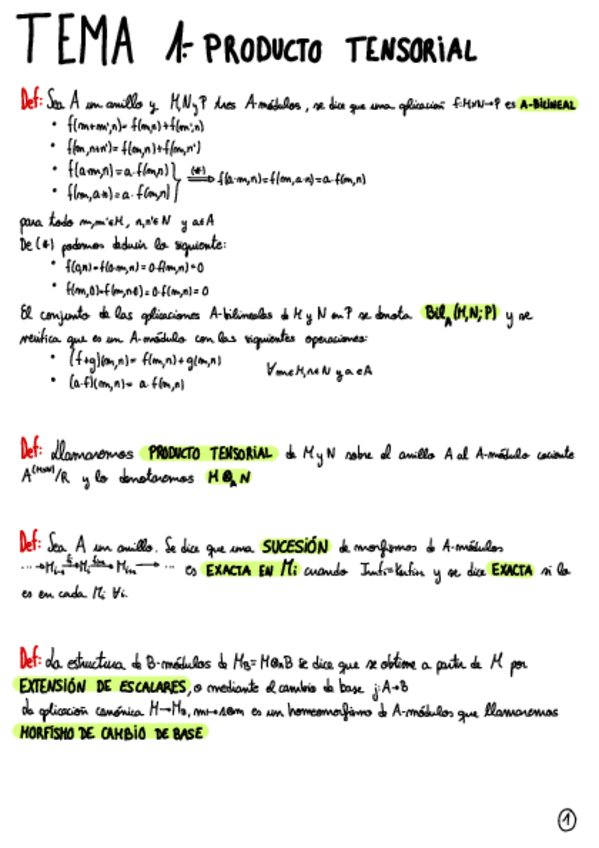 TEMA 1.- PRODUCTO TENSORIAL
Def: Sea A un anillo y M,N y P tres A-módulos, se dice que una aplicación f:M×N→P es A-BILINEAL
• f(m+m',n)=f(m,n)+f(m',n)
• f(m,n+n')=f(m,n)+f(m,n')
• f(a·m,n)=a·f(m,n)
• f(m,a·n)=a·f(m,n)
(*) ⟹ f(a·m,n)=f(m,a·n)=a·f(m,n)
para todo m,m'∈M, n,n'∈N y a∈A
De (*) podemos deducir lo siguiente:
• f(0,n)=f(0·m,n)=0·f(m,n)=0
• f(m,0)=f(m,n·0)=0·f(m,n)=0
El conjunto de las aplicaciones A-bilineales de M y N en P se denota Bil_A(M,N;P) y se
verifica que es un A-módulo con las siguientes operaciones:
• (f+g)(m,n)=f(m,n)+g(m,n)
• (a·f)(m,n)=a·f(m,n)
∀m∈M,n∈N y a∈A
Def: Llamaremos PRODUCTO TENSORIAL de M y N sobre el anillo A al A-módulo cociente
A^(M×N)/R y lo denotaremos M⊗_A N
Def: Sea A un anillo. Se dice que una SUCESIÓN de morfismos de A-módulos
es EXACTA EN Mi cuando y se dice EXACTA si lo
es en cada Mi ∀i.
Def: La estructura de B-módulos de M_B=M⊗_A B se dice que se obtiene a partir de M por
EXTENSIÓN DE ESCALARES, o mediante el cambio de base j:A→B
La aplicación canónica M→M_B, es un homeomorfismo de A-módulos que llamaremos
MORFISMO DE CAMBIO DE BASE
1